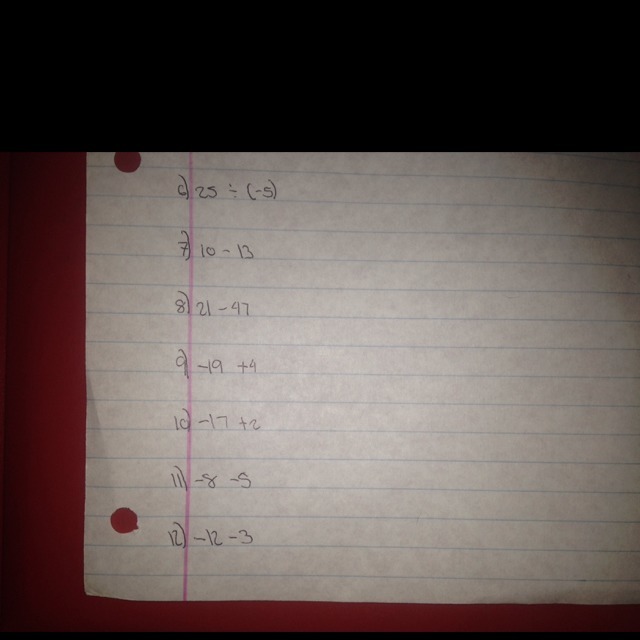 6) 25 ÷ (-5)
7) 10 - 13
8) 21 - 47
9) -19 +4
10) -17 +2
11) -8 -5
12) -12 - 3